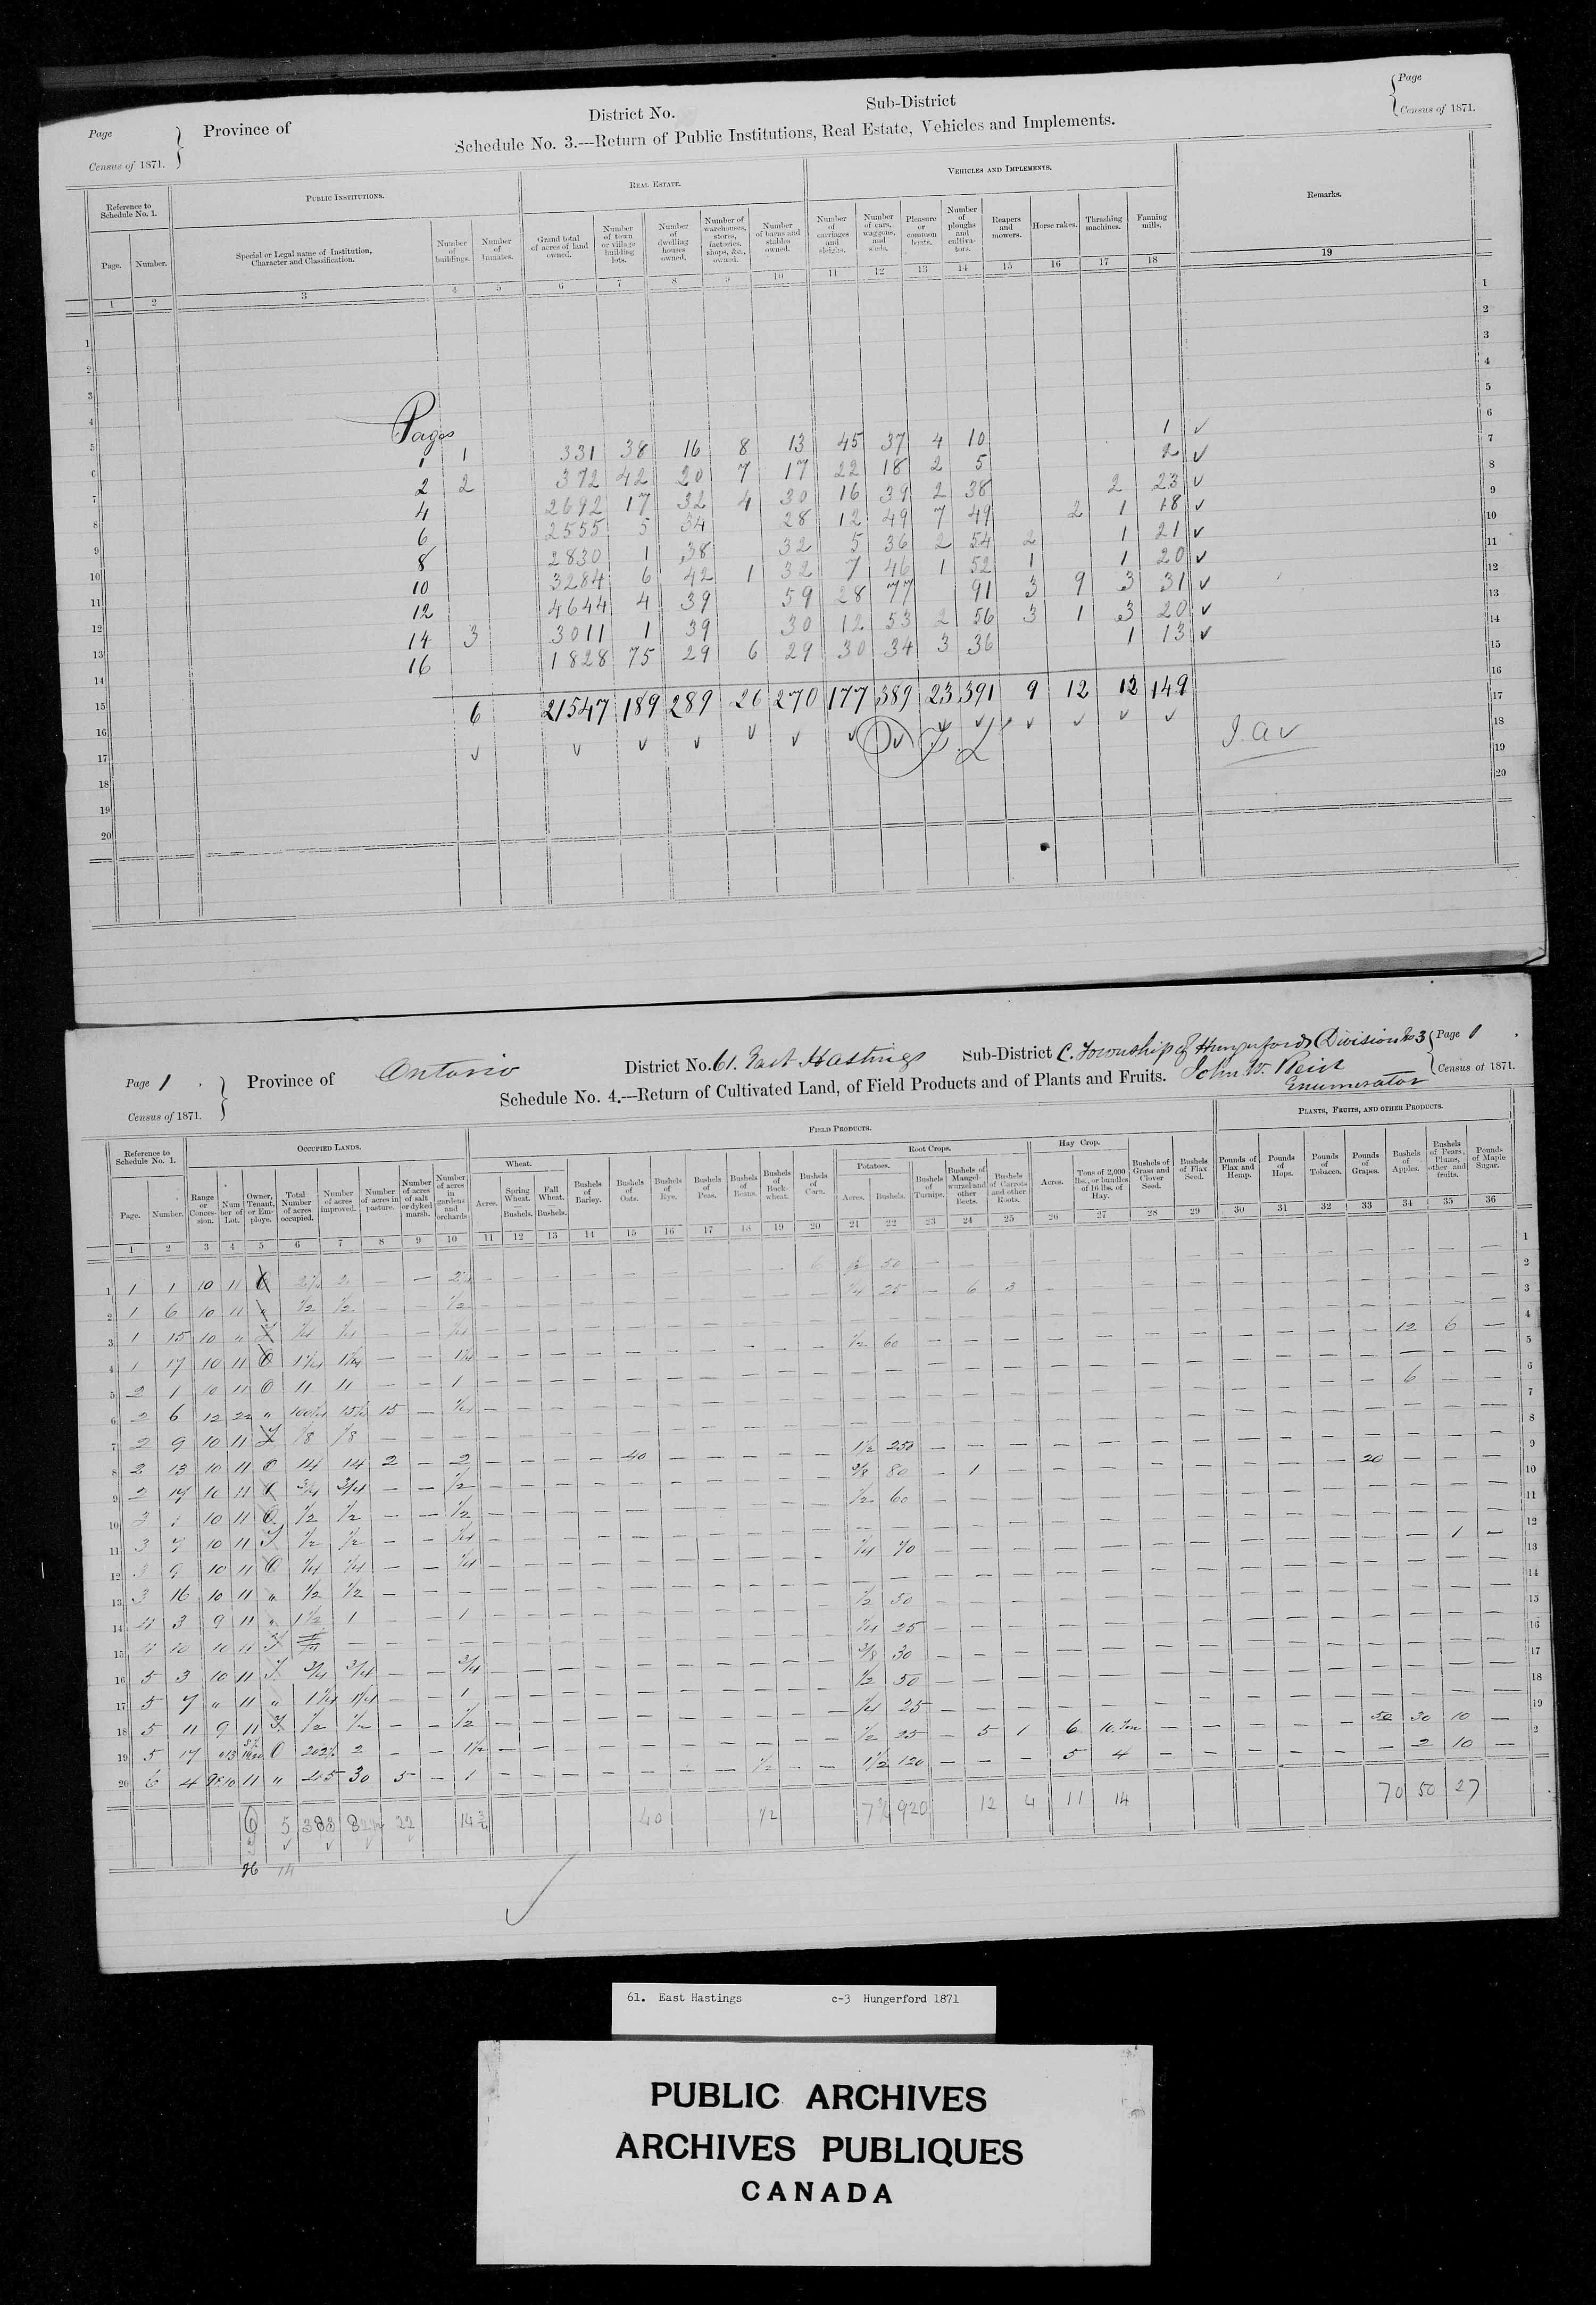 Page
Census of 1871.
Province of
District No.
Sub-District
Page
Census of 1871.
Schedule No. 3.---Return of Public Institutions, Real Estate, Vehicles and Implements.
Reference to Schedule No. 1.
Public Institutions.
Real Estate.
Vehicles and Implements.
Remarks.
Page. Number. Special or Legal name of Institution, Character and Classification. Number of buildings. Number of Inmates. Grand total of acres of land owned. Number of town or village building lots. Number of dwelling houses owned. Number of warehouses, stores, factories, shops, &c., owned. Number of barns and stables owned. Number of carriages and sleighs. Number of cars, waggons, and sleds. Pleasure or common boats. Number of ploughs and cultivators. Reapers and mowers. Horse rakes. Thrashing machines. Fanning mills.
1 2 3 4 5 6 7 8 9 10 11 12 13 14 15 16 17 18 19
Pages
1 1 331 38 16 8 13 45 37 4 10 1 ✓
2 2 372 42 20 7 17 22 18 2 5 2 ✓
4 2692 17 32 4 30 16 39 2 38 2 23 ✓
6 2555 5 34 28 12 49 7 49 2 1 18 ✓
8 2830 1 38 32 5 36 2 54 2 1 21 ✓
10 3284 6 42 1 32 7 46 1 52 1 1 20 ✓
12 4644 4 39 59 28 77 91 3 9 3 31 ✓
14 3 3011 1 39 30 12 53 2 56 3 1 3 20 ✓
16 1828 75 29 6 29 30 34 3 36 1 13 ✓
6 21547 189 289 26 270 177 389 23 391 9 12 12 149
Page 1
Census of 1871.
Province of Ontario
District No. 61. East Hastings
Sub-District C. Township of Hungerford Division No 3
Page 1
Census of 1871.
Schedule No. 4.---Return of Cultivated Land, of Field Products and of Plants and Fruits.
John W. Reid
Enumerator
Reference to Schedule No. 1.
Occupied Lands.
Field Products.
Plants, Fruits, and other Products.
Wheat.
Root Crops.
Potatoes.
Hay Crop.
Page. Number. Range or Concession. Number of Lot. Owner, Tenant, or Employe. Total Number of acres occupied. Number of acres improved. Number of acres in pasture. Number of acres of salt or dyked marsh. Number of acres in gardens and orchards. Acres. Spring Wheat.—Bushels. Fall Wheat. Bushels. Bushels of Barley. Bushels of Oats. Bushels of Rye. Bushels of Peas. Bushels of Beans. Bushels of Buckwheat. Bushels of Corn. Acres. Bushels. Bushels of Turnips. Bushels of Mangel-wurzel and other Beets. Bushels of Carrots and other Roots. Acres. Tons of 2,000 lbs., or bundles of 16 lbs. of Hay. Bushels of Grass and Clover Seed. Bushels of Flax Seed. Pounds of Flax and Hemp. Pounds of Hops. Pounds of Tobacco. Pounds of Grapes. Bushels of Apples. Bushels of Pears, Plums, other and fruits. Pounds of Maple Sugar.
1 2 3 4 5 6 7 8 9 10 11 12 13 14 15 16 17 18 19 20 21 22 23 24 25 26 27 28 29 30 31 32 33 34 35 36
1 1 1 10 11
2 1 6 10 11 " 1/2 1/2 — — 1/2 1/4 25 — 6 3
3 1 15 10 " T 1/4 1/4 — — 1/4
4 1 17 10 11 O 1 1/4 1 1/4 — — 1/2 60 12 6
5 2 1 10 11 O 11 11 — — 1
6 2 6 12 22 " 15 — 1/4 6
7 2 9 10 11 T 1/8 1/8
8 2 13 10 11 O 14 14 2 — 2 40 1 1/2 250
9 2 14 10 11 O 3/4 3/4 — — 1/2 3/8 80 — 1 20
10 3 1 10 11 O 1/2 1/2 — — 1/2 1/2 60
11 3 7 10 11 T 1/2 1/2 — — 1/4
12 3 9 10 11 O 1/4 1/4 — — 1/4 1/4 70 1
13 3 16 10 11 " 1/2 1/2
14 4 3 9 11 " 1 1/2 1 — — 1 1/2 50
15 4 10 10 11 T 1/4 25
16 5 3 10 11 T 3/4 3/4 — — 3/4 3/8 30
17 5 7 " 11 " 1 1/4 1 1/4 — — 1 1/2 50
18 5 11 9 11 T 1/2 1/2 — — 1/2 1/4 25
19 5 17 O 202 1/2 2 — — 1 1/2 1/2 25 — 5 1 6 10 Ton 50 30 10
20 6 4 9&10 11 " 45 30 5 — 1 1/2 1 1/2 120 5 4 2 10
6 5 383 22 14 3/4 40 1/2 920 12 4 11 14 70 50 27
14
61. East Hastings c-3 Hungerford 1871
PUBLIC ARCHIVES
ARCHIVES PUBLIQUES
CANADA